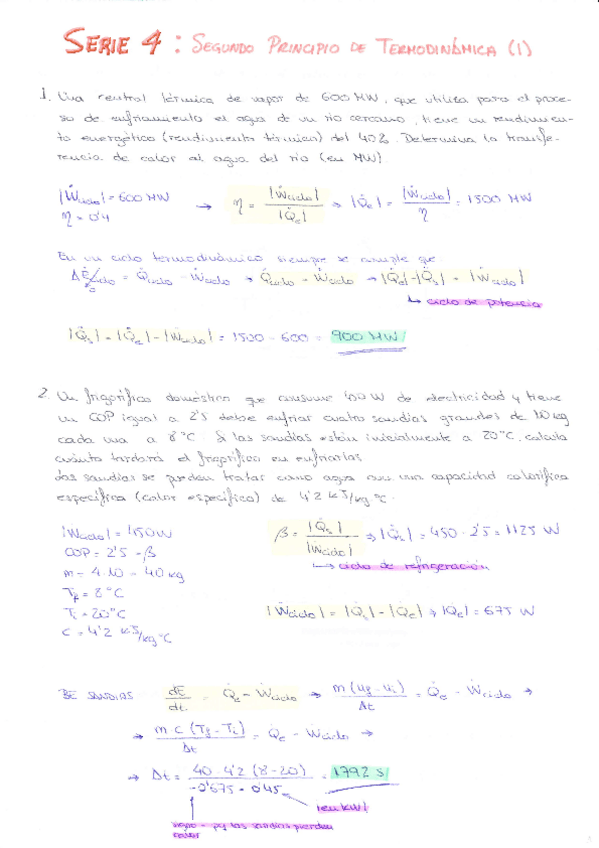 SERIE 4 : SEGUNDO PRINCIPIO DE TERMODINÁMICA (1)
1. Una central térmica de vapor de 600 MW, que utiliza para el proce-
so de enfriamiento el agua de un río cercano, tiene un rendimien-
to energético (rendimiento térmico) del 40%. Determina la transfe-
rencia de calor al agua del río (en MW)
|Ẇciclo| = 600 MW
η = 0'4
→ η = |Ẇciclo| / |Q̇e| → |Q̇e| = |Ẇciclo| / η = 1500 MW
En un ciclo termodinámico siempre se cumple que
ΔĖciclo = Q̇ciclo - Ẇciclo → Q̇ciclo = Ẇciclo → |Q̇e| - |Q̇s| = |Ẇciclo|
↳ ciclo de potencia
|Q̇s| = |Q̇e| - |Ẇciclo| = 1500 - 600 = 900 MW
2. Un frigorífico doméstico que consume 450 W de electricidad y tiene
un COP igual a 2'5 debe enfriar cuatro sandías grandes de 10 kg
cada una a 8°C. Si las sandías están inicialmente a 20°C, calcula
cuánto tardará el frigorífico en enfriarlas.
Las sandías se pueden tratar como agua con una capacidad calorífica
específica (calor específico) de 4'2 kJ/kg °C.
|Ẇciclo| = 450 W
COP = 2'5 = β
m = 4·10 = 40 kg
Tf = 8°C
Ti = 20°C
c = 4'2 kJ/kg °C
β = |Q̇s| / |Ẇciclo| → |Q̇s| = 450 · 2'5 = 1125 W
↳ ciclo de refrigeración
|Ẇciclo| = |Q̇s| - |Q̇e| → |Q̇e| = 675 W
BE SANDIAS dE/dt = Q̇e - Ẇciclo → m (uf - ui) / Δt = Q̇e - Ẇciclo →
→ m c (Tf - Ti) / Δt = Q̇e - Ẇciclo →
→ Δt = 40 · 4'2 (8 - 20) / -0'675 - 0'45 = 1792 s
¡en kW!
signo - pq las sandías pierden
calor